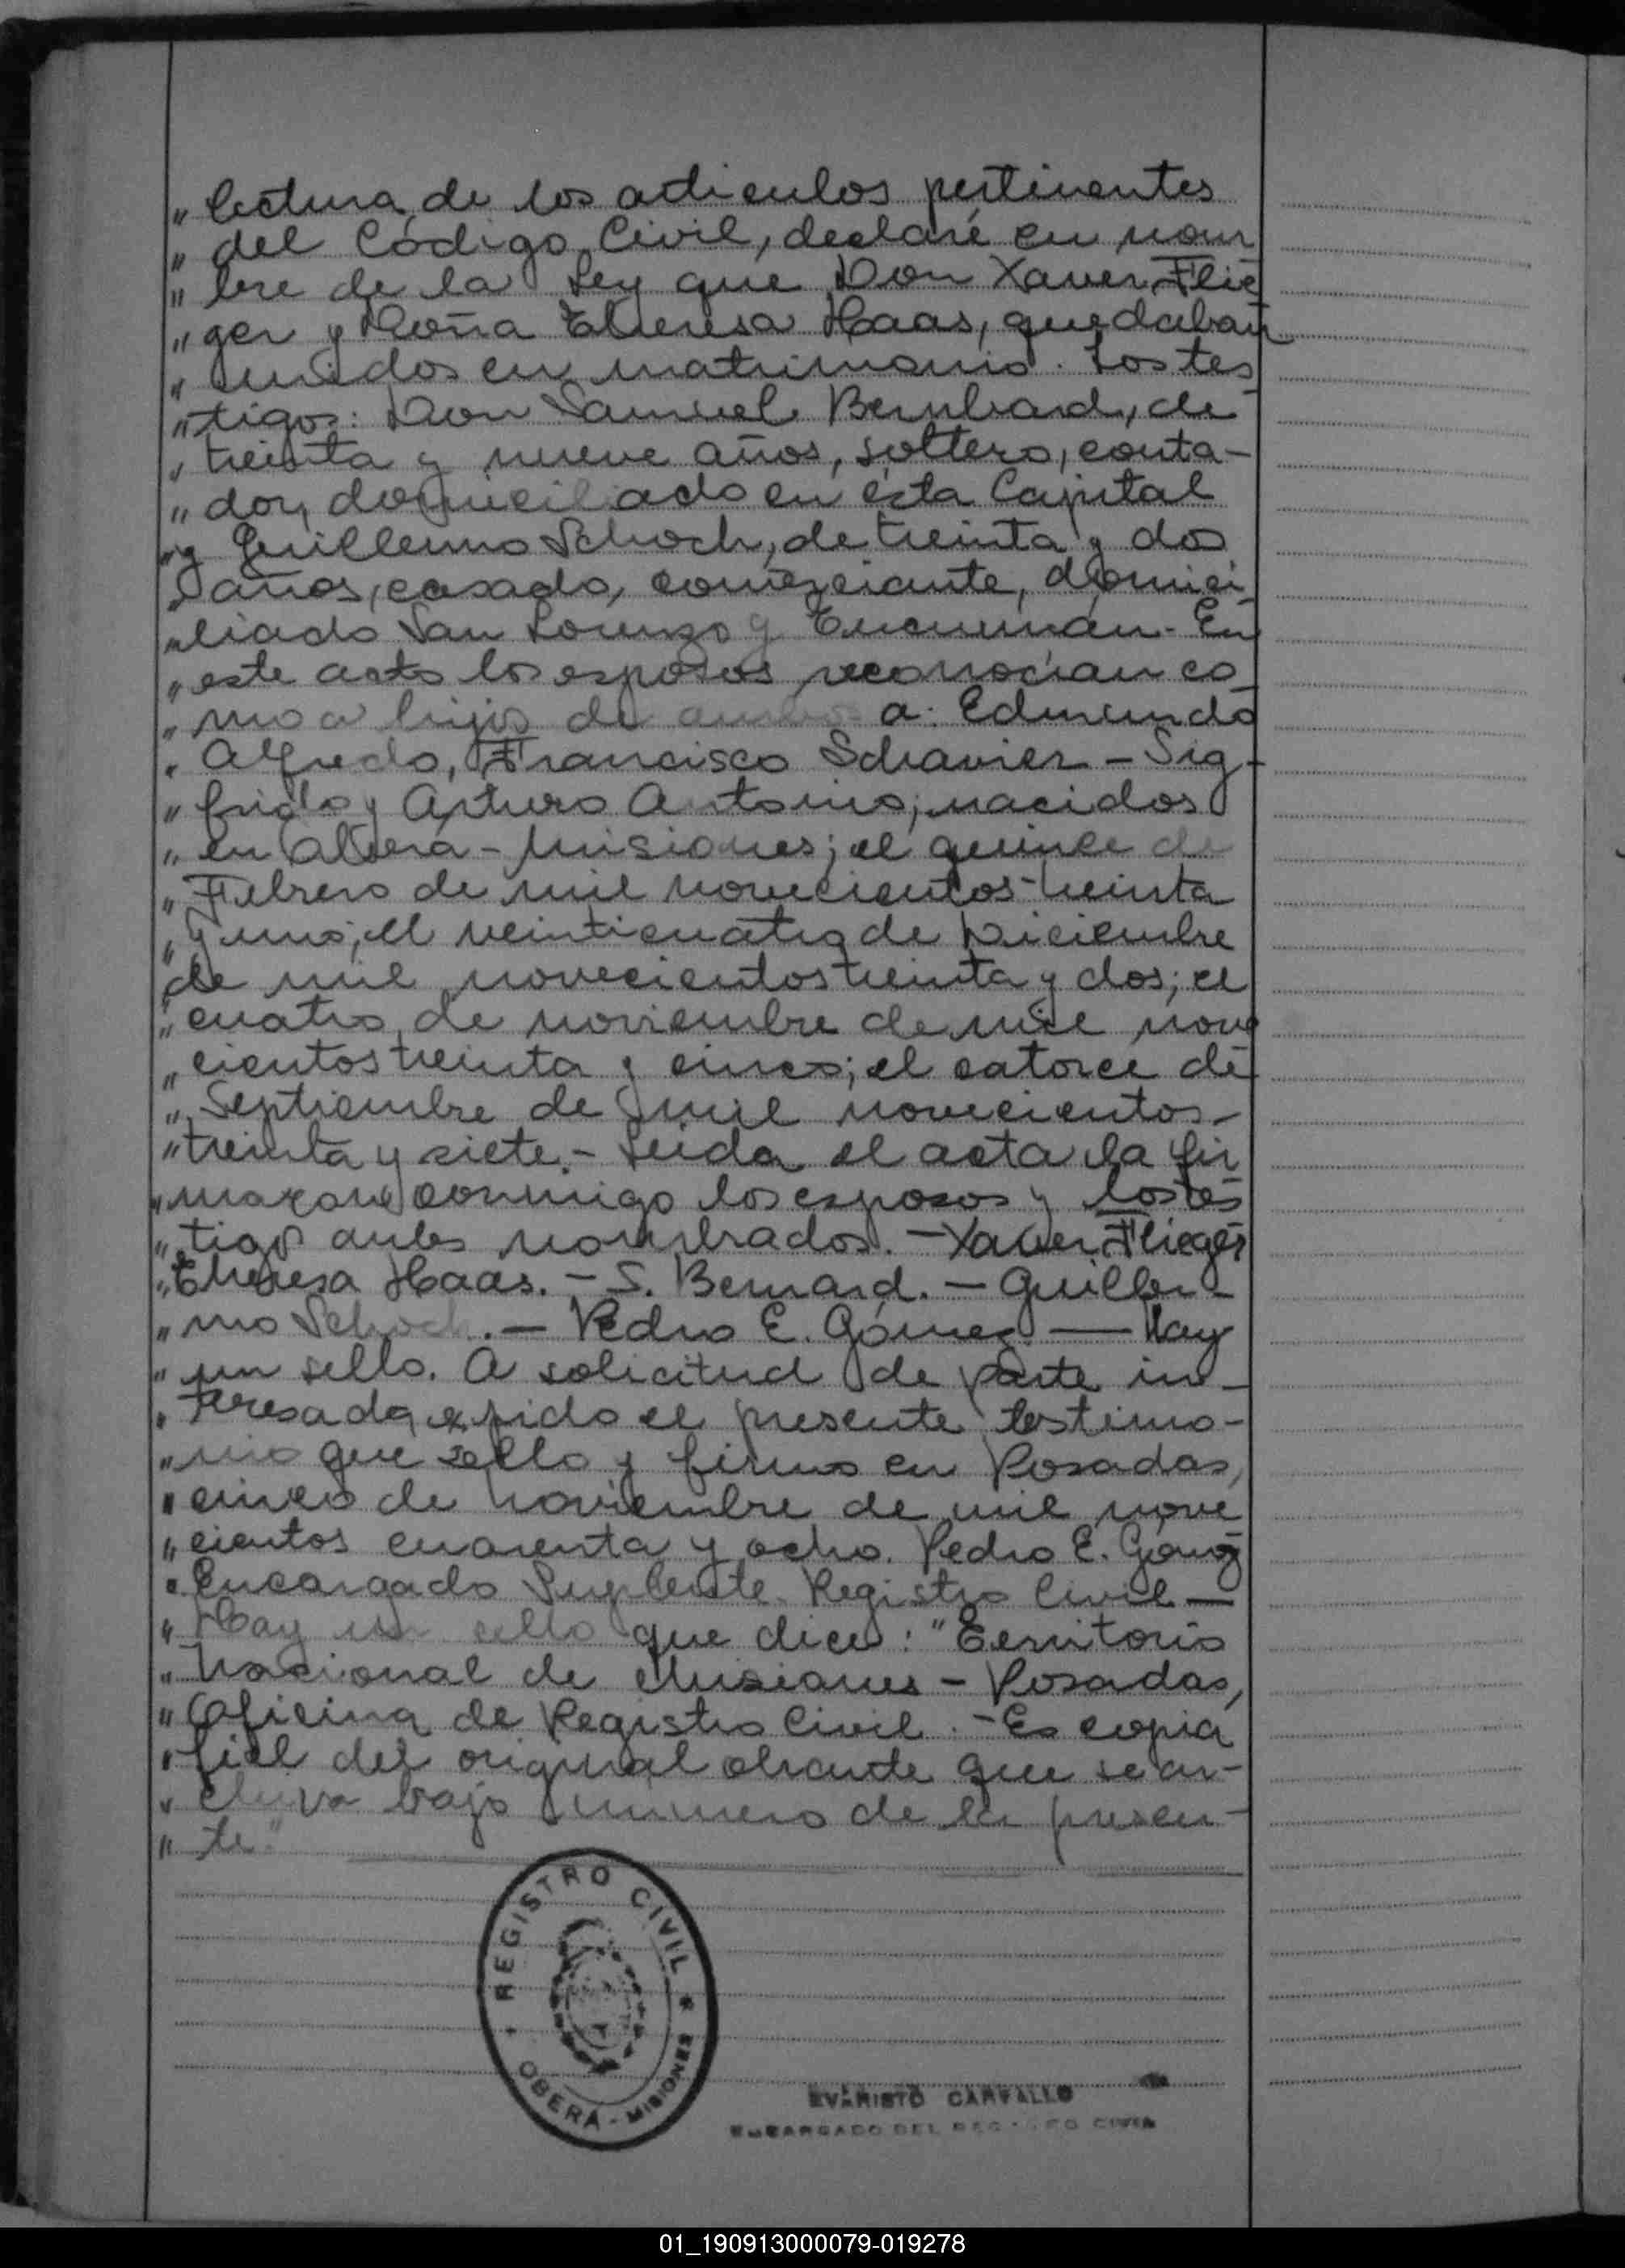 " lectura de los articulos pertinentes
" del Código Civil, declaré en nom
" bre de la Ley que Don Xaver Flie
" ger y Doña Theresa Haas, quedaban
" unidos en matrimonio. Los tes
" tigos: Don Samuel Bernhard, de
" treinta y nueve años, soltero, conta-
" dor, domiciliado en ésta Capital
" y Guillermo Schoch, de treinta y dos
" años, casado, comerciante, domici
" liado San Lorenzo y Tucumán.- En
" este acto los esposos reconocian co
" mo a hijos de ambos a: Edmundo
" Alfredo, Francisco Schavier - Sig-
" frido y Arturo Antonio; nacidos
" en Oberá - Misiones; el quince de
" Febrero de mil novecientos treinta
" y uno; el veinticuatro de Diciembre
de mil novecientos treinta y dos; el
" cuatro de noviembre de mil nove
" cientos treinta y cinco; el catorce de
" Septiembre de mil novecientos-
" treinta y siete.- Leida el acta la fir
" maron conmigo los esposos y los tes
" tigos antes nombrados. - Xaver Flieger
" Theresa Haas. - S. Bernard. - Guiller-
" mo Schoch. - Pedro E. Gómez — Hay
" un sello. A solicitud de parte in-
" teresada expido el presente testimo-
" nio que sello y firmo en Posadas,
" cinco de noviembre de mil nove
" cientos cuarenta y ocho. Pedro E. Gómez
" Encargado Suplente Registro Civil —
" Hay un sello que dice: "Territorio
" Nacional de Misiones - Posadas,
" Oficina de Registro Civil. - Es copia
" fiel del original obrante que se ar-
" chiva bajo número de la presen-
" te."
REGISTRO CIVIL
OBERÁ - MISIONES
EVARISTO CARVALLO
ENCARGADO DEL REGISTRO CIVIL
01_190913000079-019278